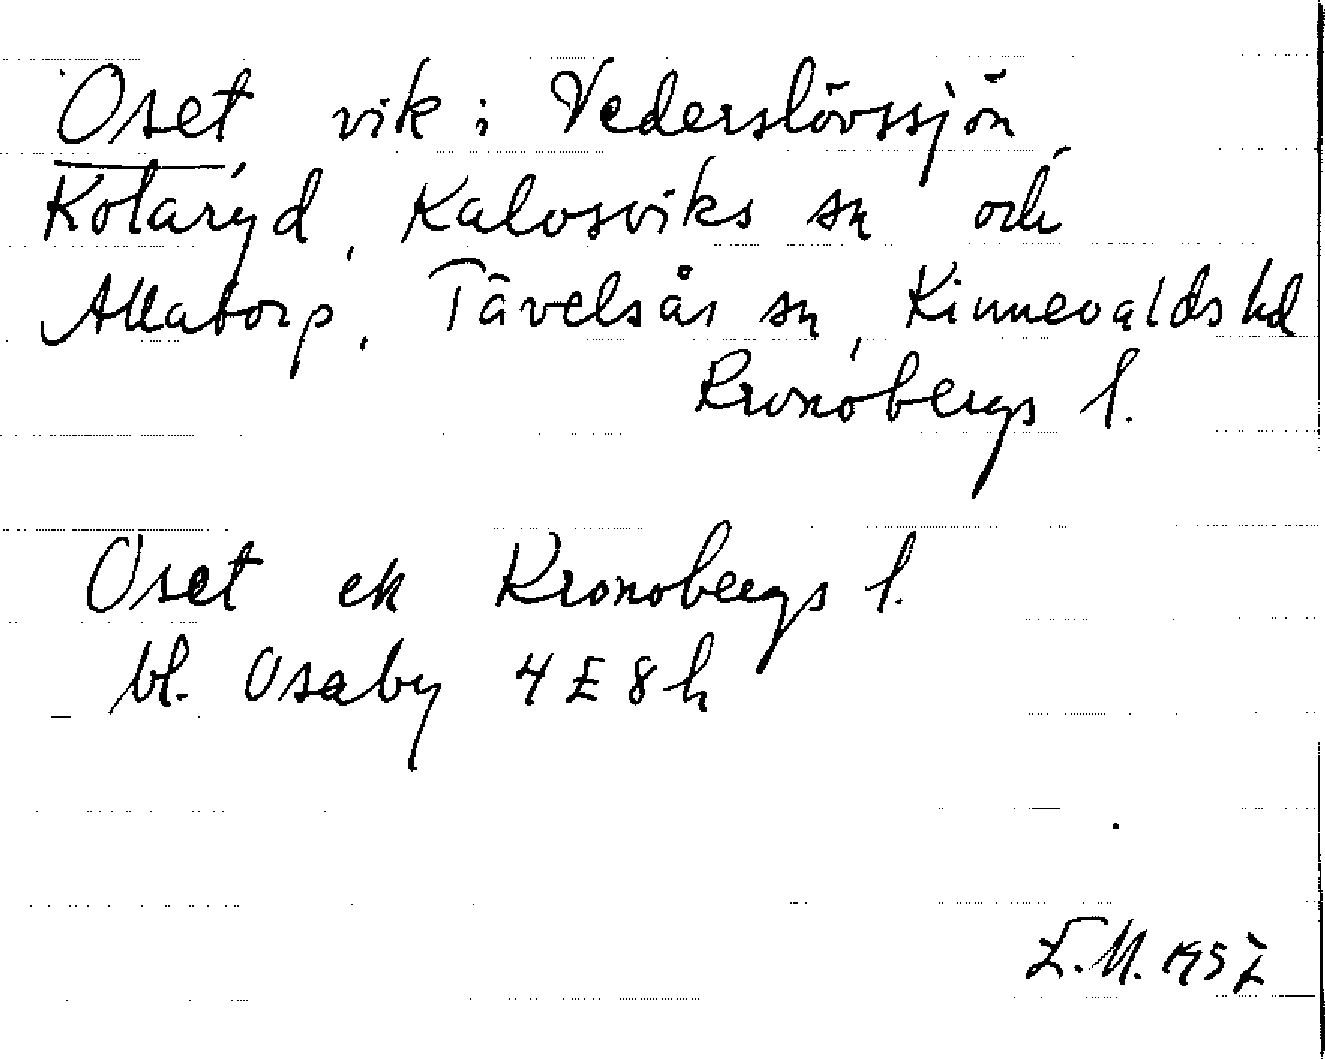 Oset vik i Vederslövssjön
Kotaryd, Kalvsviks sn och
Allatorp, Tävelsås sn, Kinnevalds hd
Kronobergs l.
Oset ek Kronobergs l.
bl. Osaby 4 E 8 h
E.M. 1957